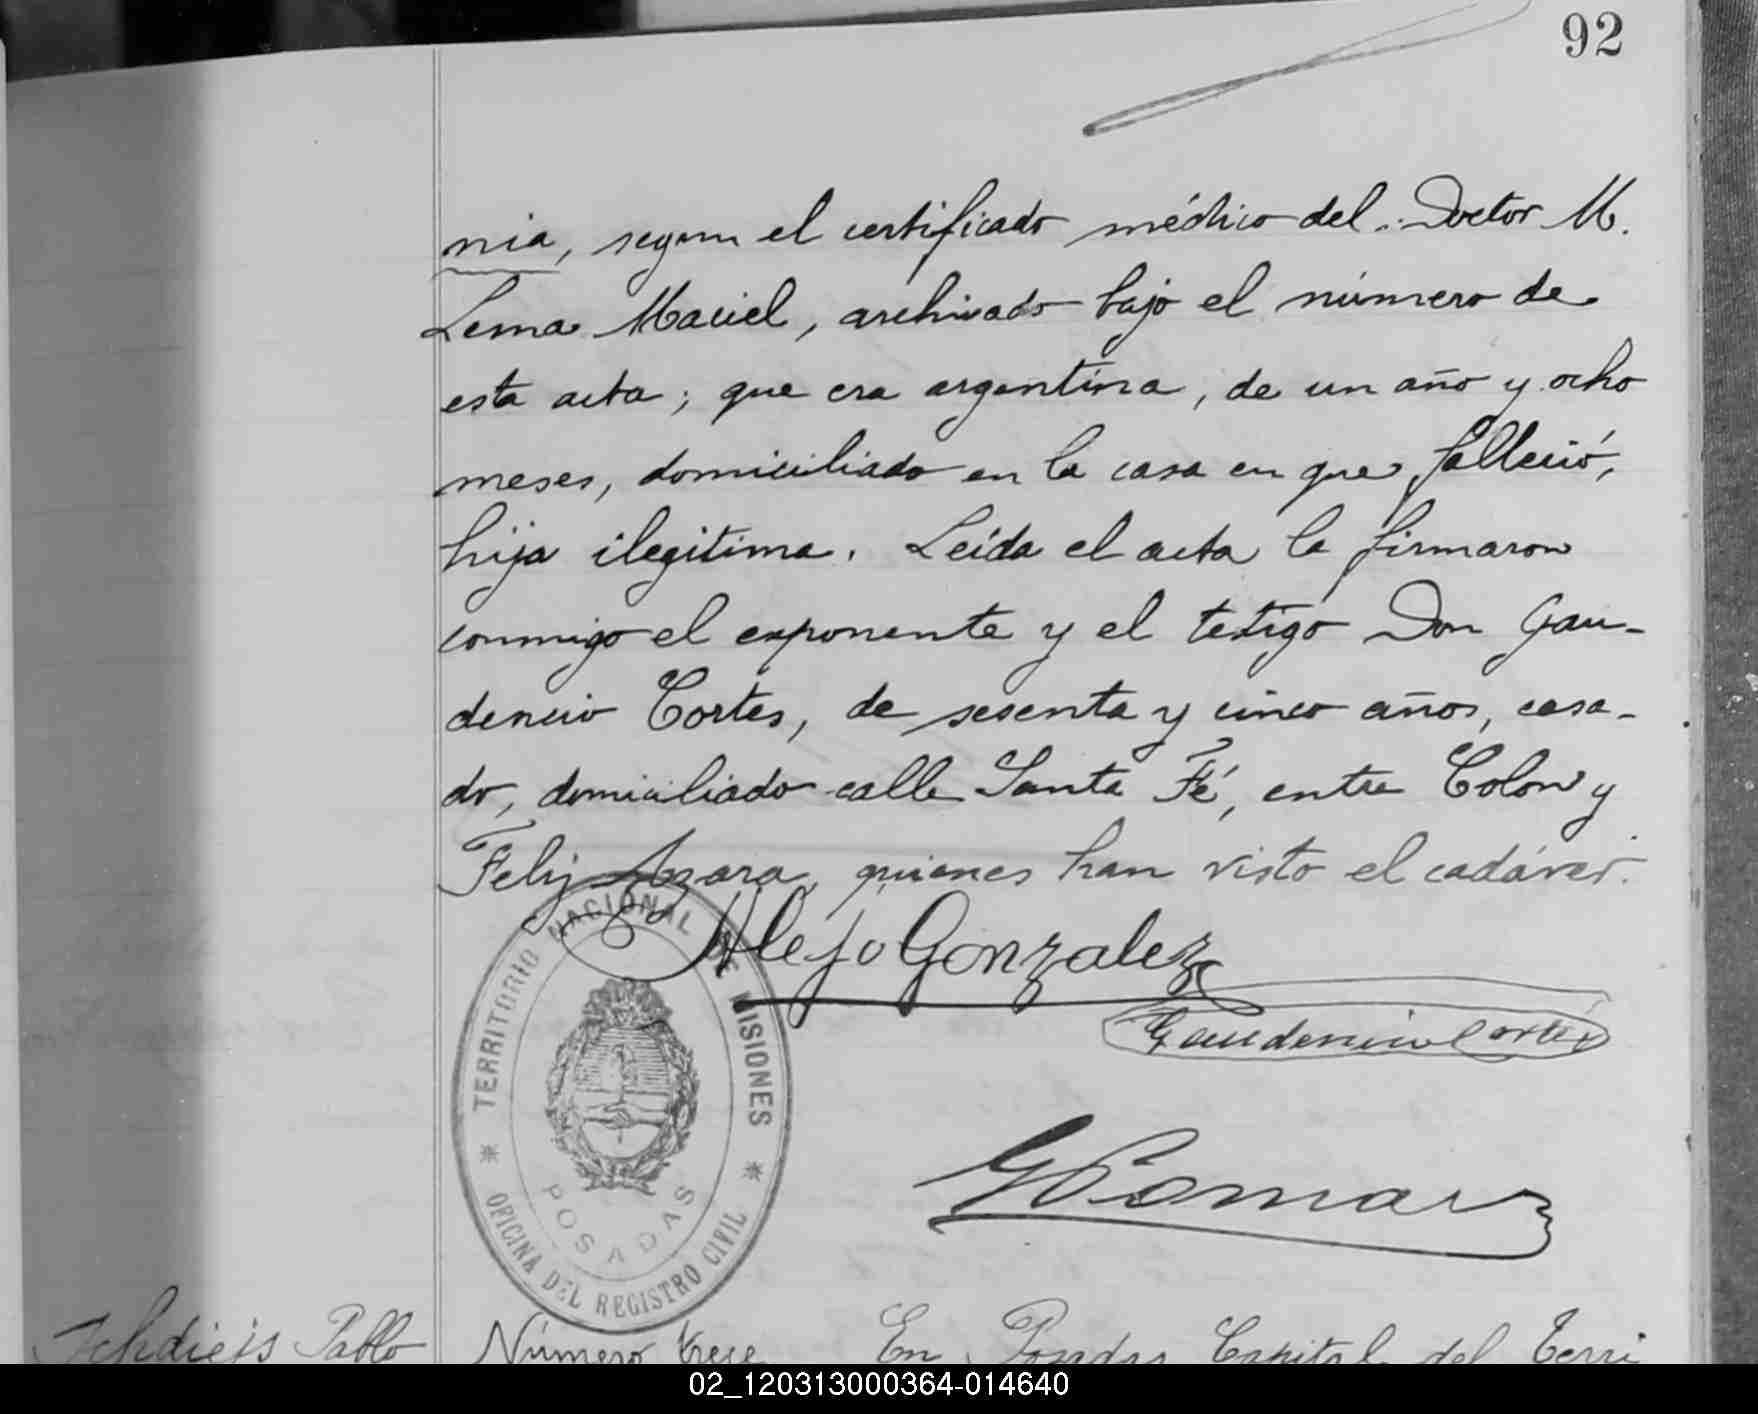 92
nia, segun el certificado médico del Doctor M.
Lema Maciel, archivado bajo el número de
esta acta; que era argentina, de un año y ocho
meses, domiciliado en la casa en que falleció,
hija ilegitima. Leida el acta la firmaron
conmigo el exponente y el testigo Don Gau-
dencio Cortes, de sesenta y cinco años, casa-
do, domiciliado calle Santa Fé, entre Colon y
Feliz Azara, quienes han visto el cadáver.
Alejo Gonzalez
Gaudencio Cortés
TERRITORIO NACIONAL DE MISIONES
POSADAS
OFICINA DEL REGISTRO CIVIL
Pablo
Número trece En Posadas Capital del Terri
02_120313000364-014640